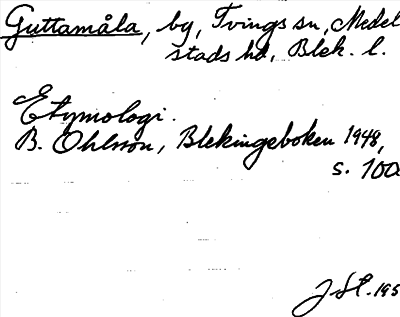 Guttamåla, by, Tvings sn, Medel
stads hd, Blek. l.
Etymologi.
B. Ohlsson, Blekingeboken 1948,
s. 100.
J SE. 195